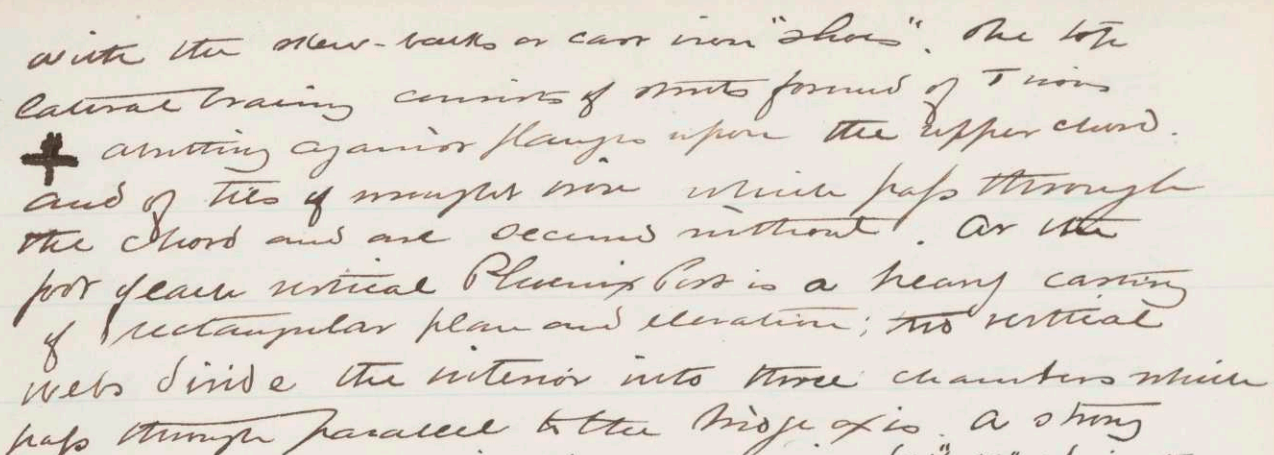 with the skew-backs or cast iron "shoes". The top
lateral bracing consists of struts formed of T irons
abutting against flanges upon the upper chord.
and of ties of wrought iron which pass through
the chord and are secured without. At the
foot of each vertical Phoenix Post is a heavy casting
of rectangular plan and elevation; two vertical
webs divide the interior into three chambers which
pass through parallel to the bridge axis. A strong